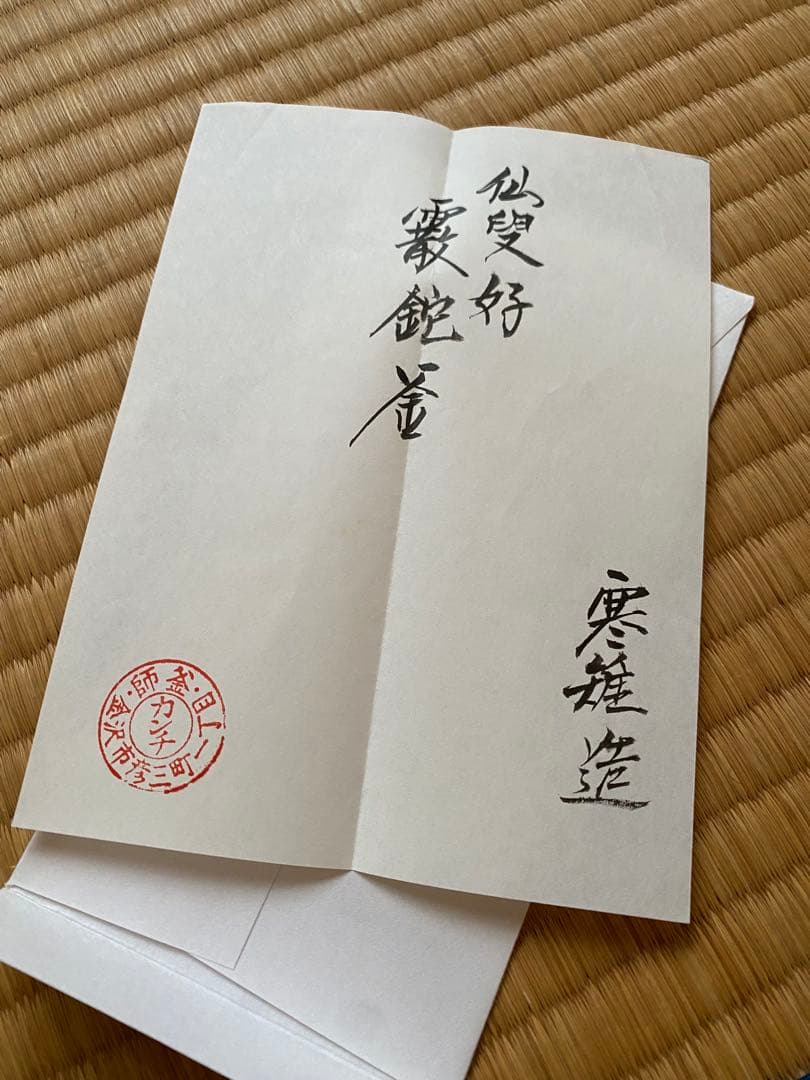 仙叟好
霰鉈釜
寒雉造
金沢市彦三町一丁目・釜・師
カンチ